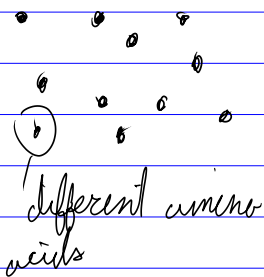 different amino
acids